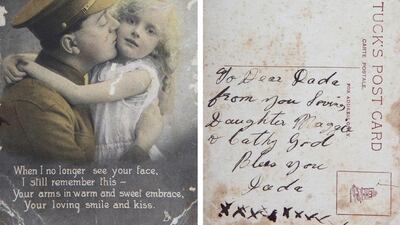 When I no longer see your face,
I still remember this –
Your arms in warm and sweet embrace,
Your loving smile and kiss.
TUCK'S POST CARD
CARTE POSTALE.
FOR ADDRESS ONLY
To Dear Dada
from you Loving
Daughter Maggie
& Cathy God
Bless you
Dada
xxxxxxx